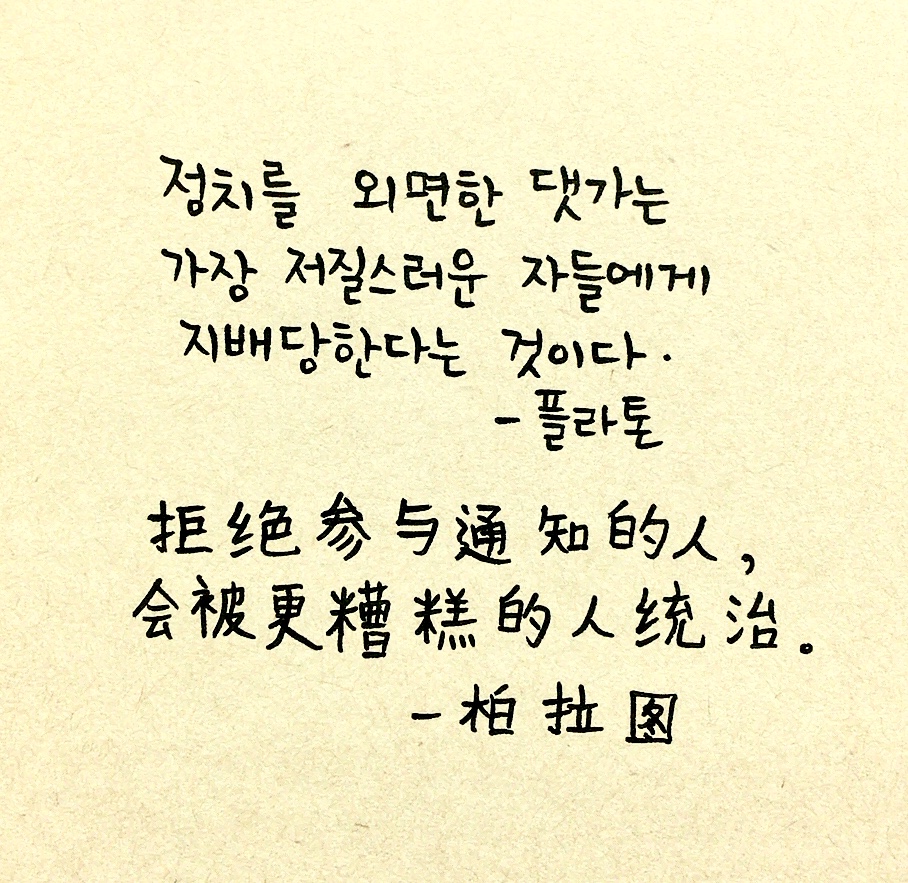 정치를 외면한 댓가는
가장 저질스러운 자들에게
지배당한다는 것이다.
- 플라톤
拒绝参与通知的人,
会被更糟糕的人统治。
- 柏拉图